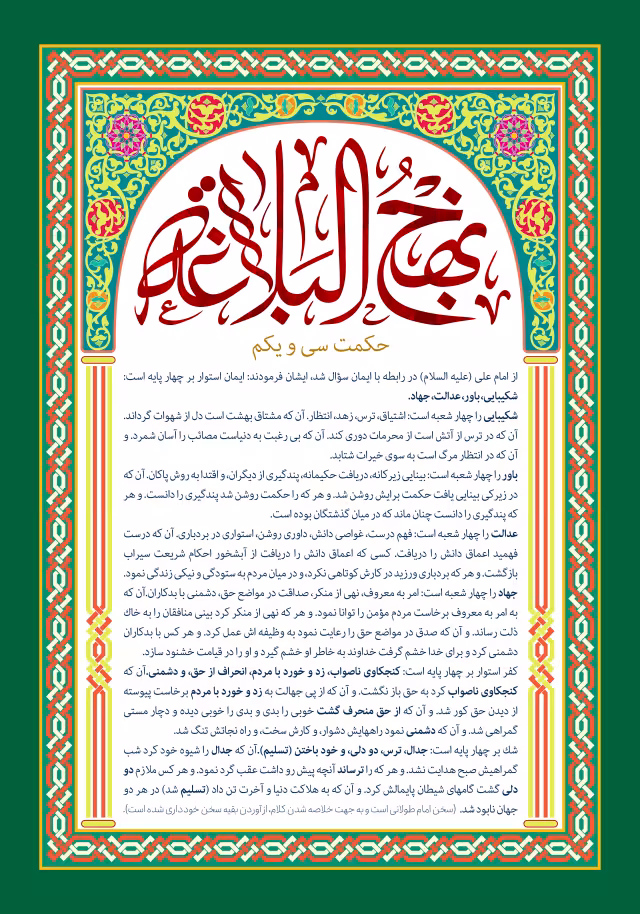 نهج البلاغة
حکمت سی و یکم
از امام علی (علیه السلام) در رابطه با ایمان سؤال شد، ایشان فرمودند: ایمان استوار بر چهار پایه است:
شکیبایی، باور، عدالت، جهاد.
شکیبایی را چهار شعبه است: اشتیاق، ترس، زهد، انتظار. آن که مشتاق بهشت است دل از شهوات گرداند.
آن که در ترس از آتش است از محرمات دوری کند. آن که بی رغبت به دنیاست مصائب را آسان شمرد. و
آن که در انتظار مرگ است به سوی خیرات شتابد.
باور را چهار شعبه است: بینایی زیرکانه، دریافت حکیمانه، پندگیری از دیگران، و اقتدا به روش پاکان. آن که
در زیرکی بینایی یافت حکمت برایش روشن شد. و هر که را حکمت روشن شد پندگیری را دانست. و هر
که پندگیری را دانست چنان ماند که در میان گذشتگان بوده است.
عدالت را چهار شعبه است: فهم درست، غواصی دانش، داوری روشن، استواری در بردباری. آن که درست
فهمید اعماق دانش را دریافت. کسی که اعماق دانش را دریافت از آبشخور احکام شریعت سیراب
بازگشت. و هر که بردباری ورزید در کارش کوتاهی نکرد، و در میان مردم به ستودگی و نیکی زندگی نمود.
جهاد را چهار شعبه است: امر به معروف، نهی از منکر، صداقت در مواضع حق، دشمنی با بدکاران. آن که
به امر به معروف برخاست مردم مؤمن را توانا نمود. و هر که نهی از منکر کرد بینی منافقان را به خاک
ذلت رساند. و آن که صدق در مواضع حق را رعایت نمود به وظیفه اش عمل کرد. و هر کس با بدکاران
دشمنی کرد و برای خدا خشم گرفت خداوند به خاطر او خشم گیرد و او را در قیامت خشنود سازد.
کفر استوار بر چهار پایه است: کنجکاوی ناصواب، زد و خورد با مردم، انحراف از حق، و دشمنی. آن که
کنجکاوی ناصواب کرد به حق باز نگشت. و آن که از پی جهالت به زد و خورد با مردم برخاست پیوسته
از دیدن حق کور شد. و آن که از حق منحرف گشت خوبی را بدی و بدی را خوبی دیده و دچار مستی
گمراهی شد. و آن که دشمنی نمود راههایش دشوار، و کارش سخت، و راه نجاتش تنگ شد.
شك بر چهار پایه است: جدال، ترس، دو دلی، و خود باختن (تسلیم). آن که جدال را شیوه خود کرد شب
گمراهیش صبح هدایت نشد. و هر که را ترساند آنچه پیش رو داشت عقب گرد نمود. و هر کس ملازم دو
دلی گشت گامهای شیطان پایمالش کرد. و آن که به هلاکت دنیا و آخرت تن داد (تسلیم شد) در هر دو
جهان نابود شد. (سخن امام طولانی است و به جهت خلاصه شدن کلام، از آوردن بقیه سخن خودداری شده است).